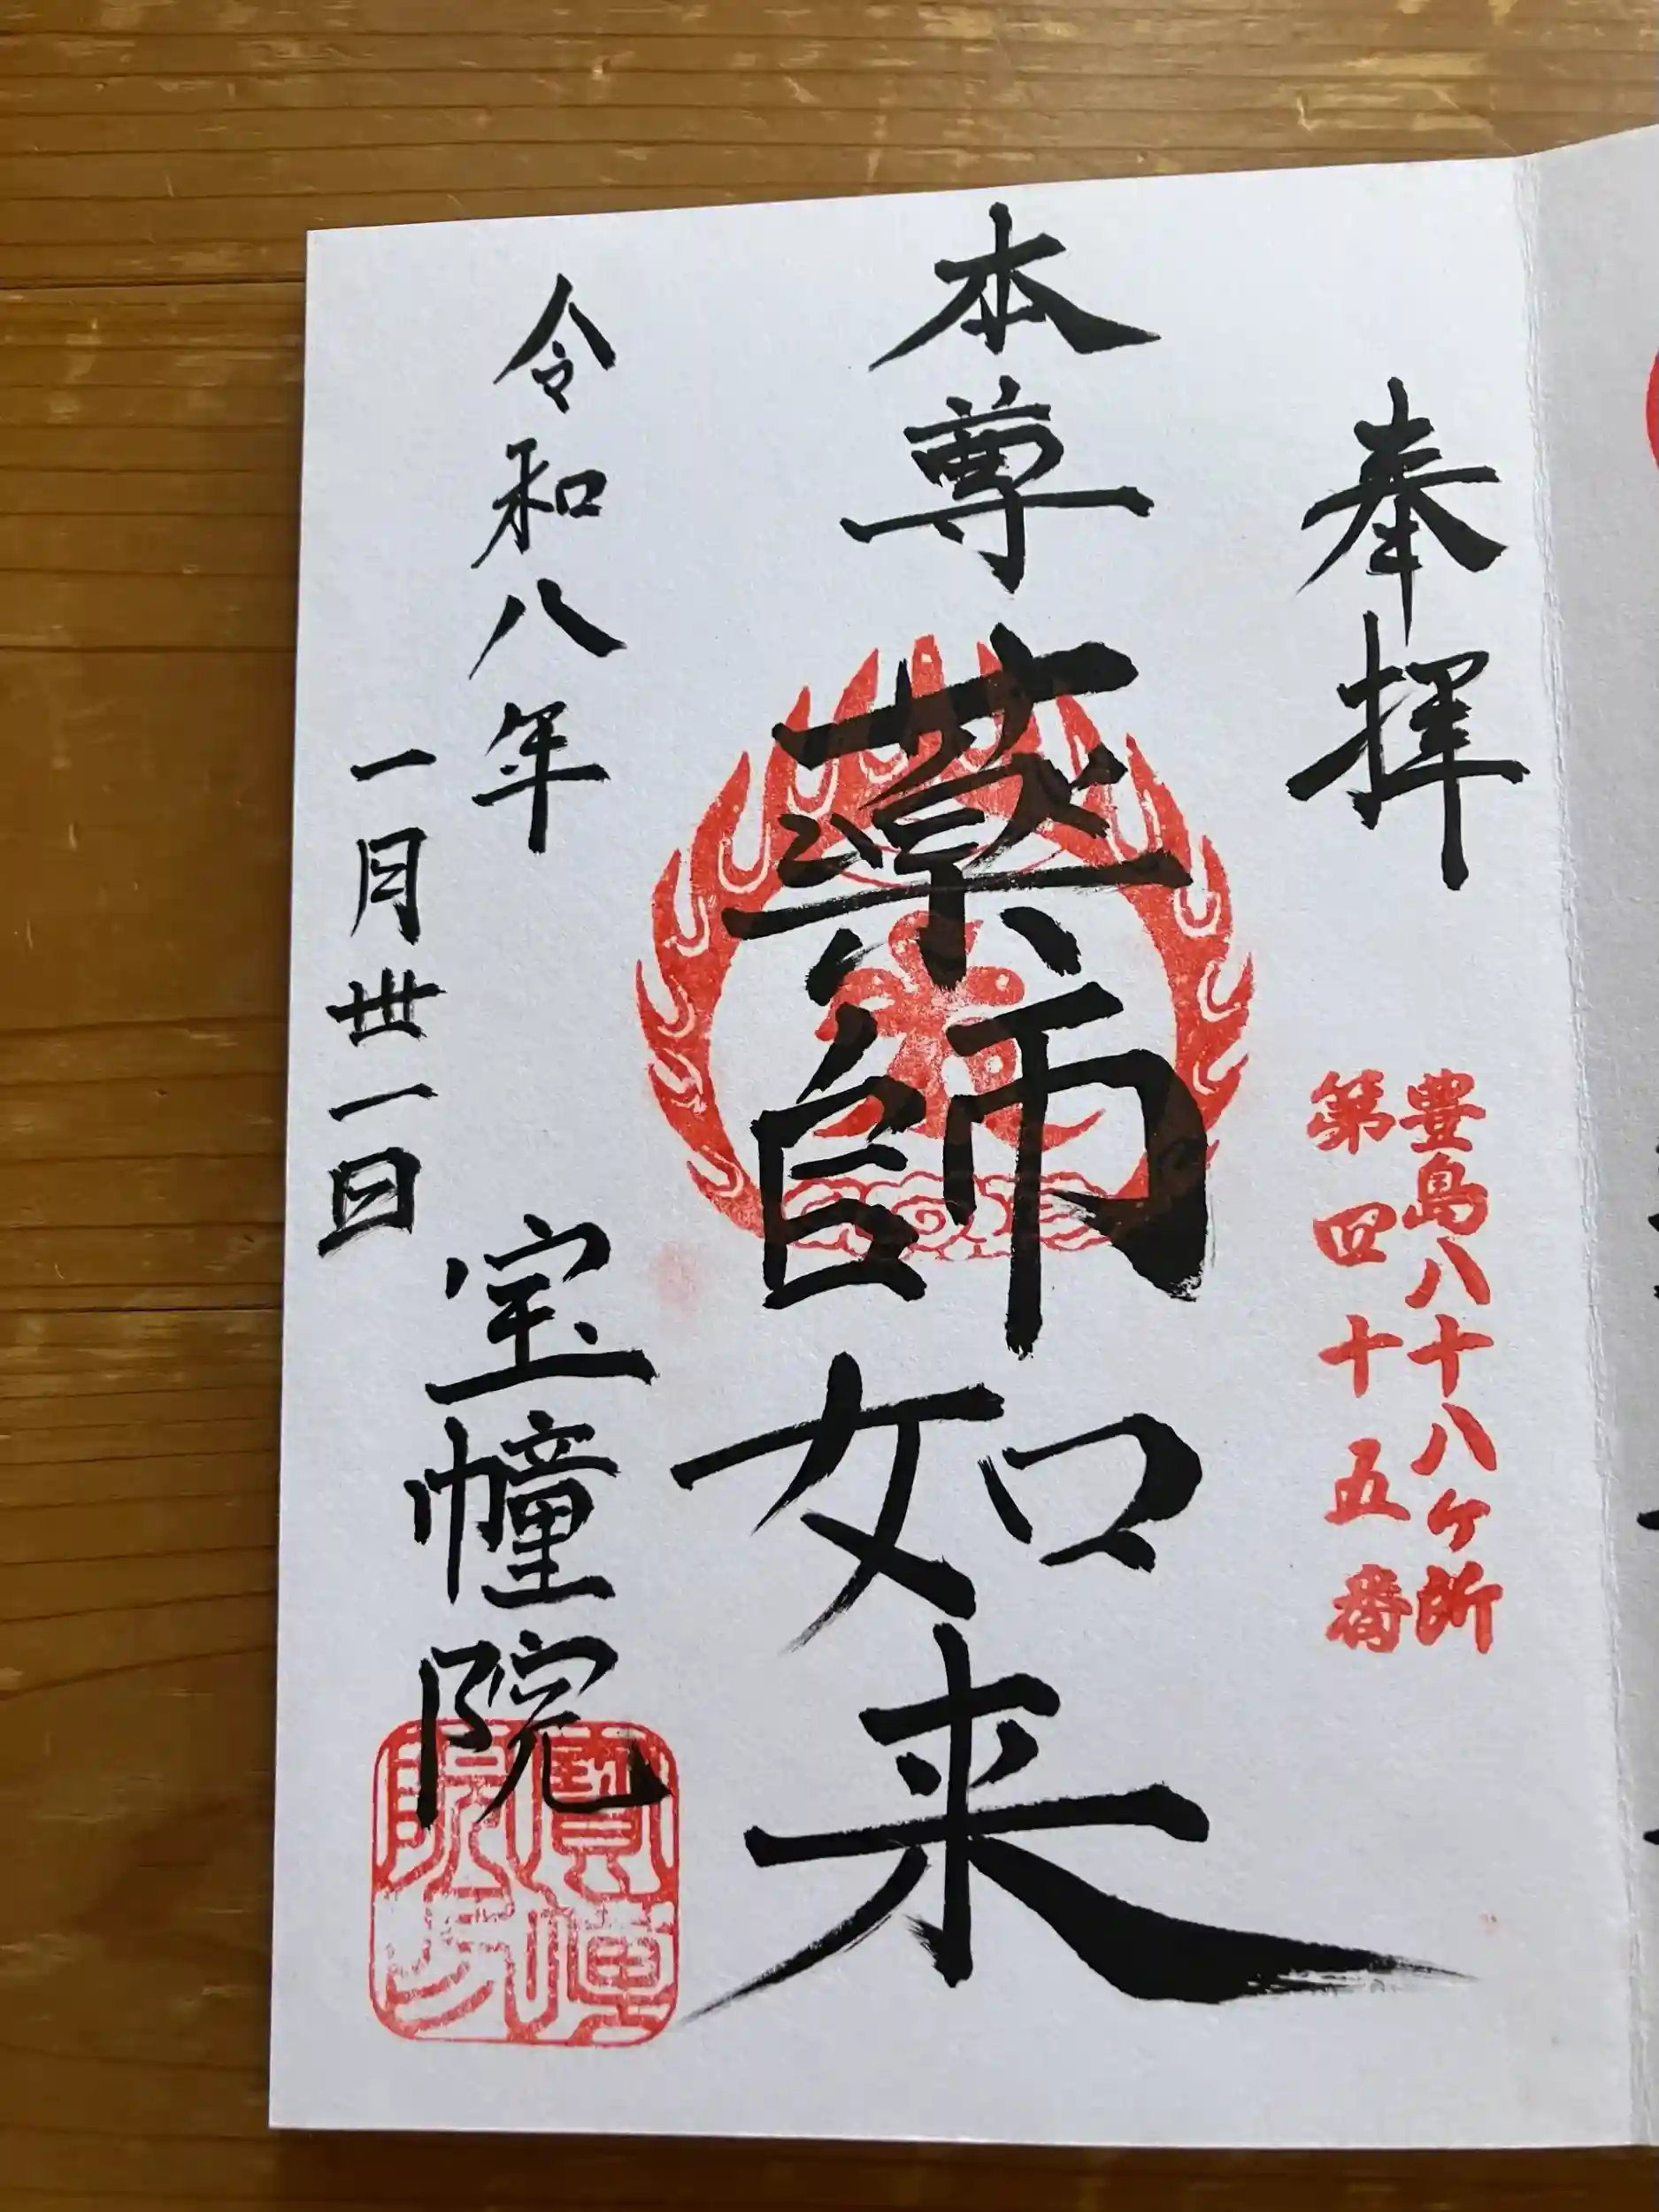 奉拝
豊島八十八ケ所
第四十五番
本尊
薬師如来
令和八年
一月丗一日
宝幢院
寶幢
院印